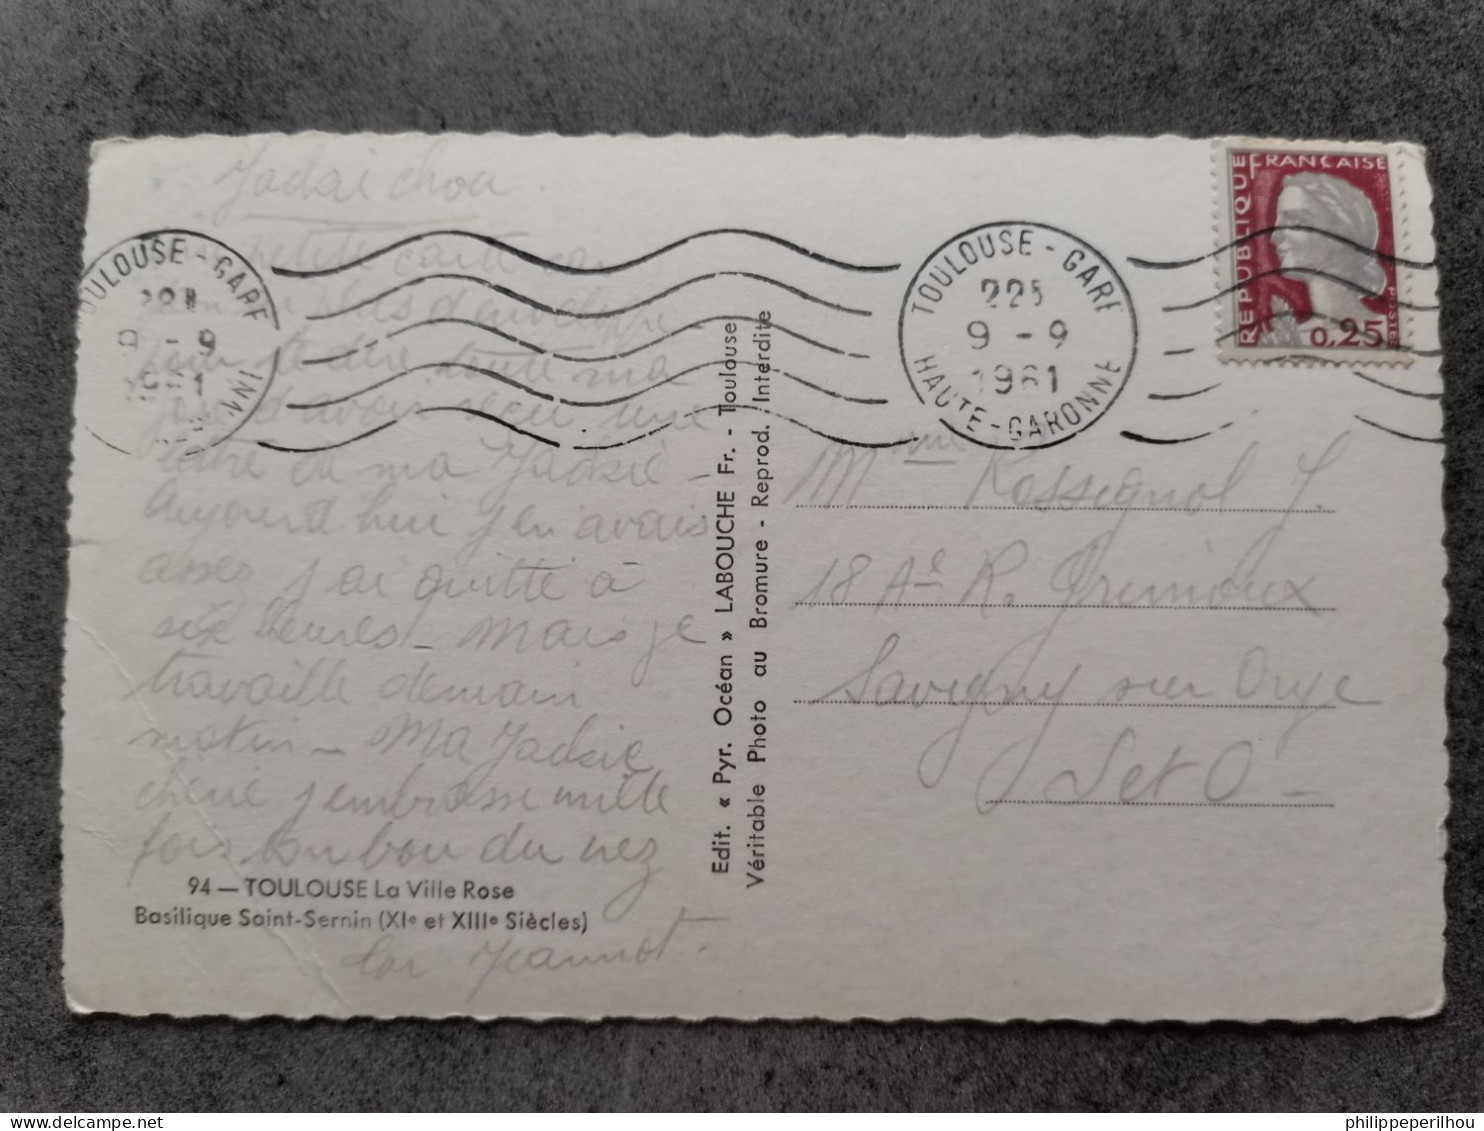 Jackie chou
petite carte car
plus d'enveloppe -
pour te dire toute ma
joie d'avoir reçu une
lettre de ma Jackie -
Aujourd'hui j'en avais
assez j'ai quitté à
six heures - Mais je
travaille demain
matin - Ma Jackie
chérie j'embrasse mille
fois ton bout du nez
94 — TOULOUSE La Ville Rose
Basilique Saint-Sernin (XIe et XIIIe Siècles)
Jeannot -
Edit. « Pyr. Océan » LABOUCHE Fr. - Toulouse
Véritable Photo au Bromure - Reprod. Interdite
TOULOUSE - GARE
9 - 9
TOULOUSE - GARE
225
9 - 9
1961
HAUTE-GARONNE
REPUBLIQUE FRANÇAISE
POSTES
0,25
Mme Rossignol J.
18 R. Grimoux
Savigny sur Orge
S et O -
philippeperilhou